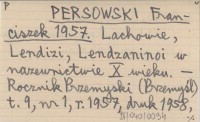 P
PERSOWSKI Fran-
ciszek 1957. Lachowie,
Lendizi, Lendzaninoi w
nazewnictwie X wieku. –
Rocznik Przemyski (Przemyśl)
t. 9, nr 1, r. 1957, druk 1958,